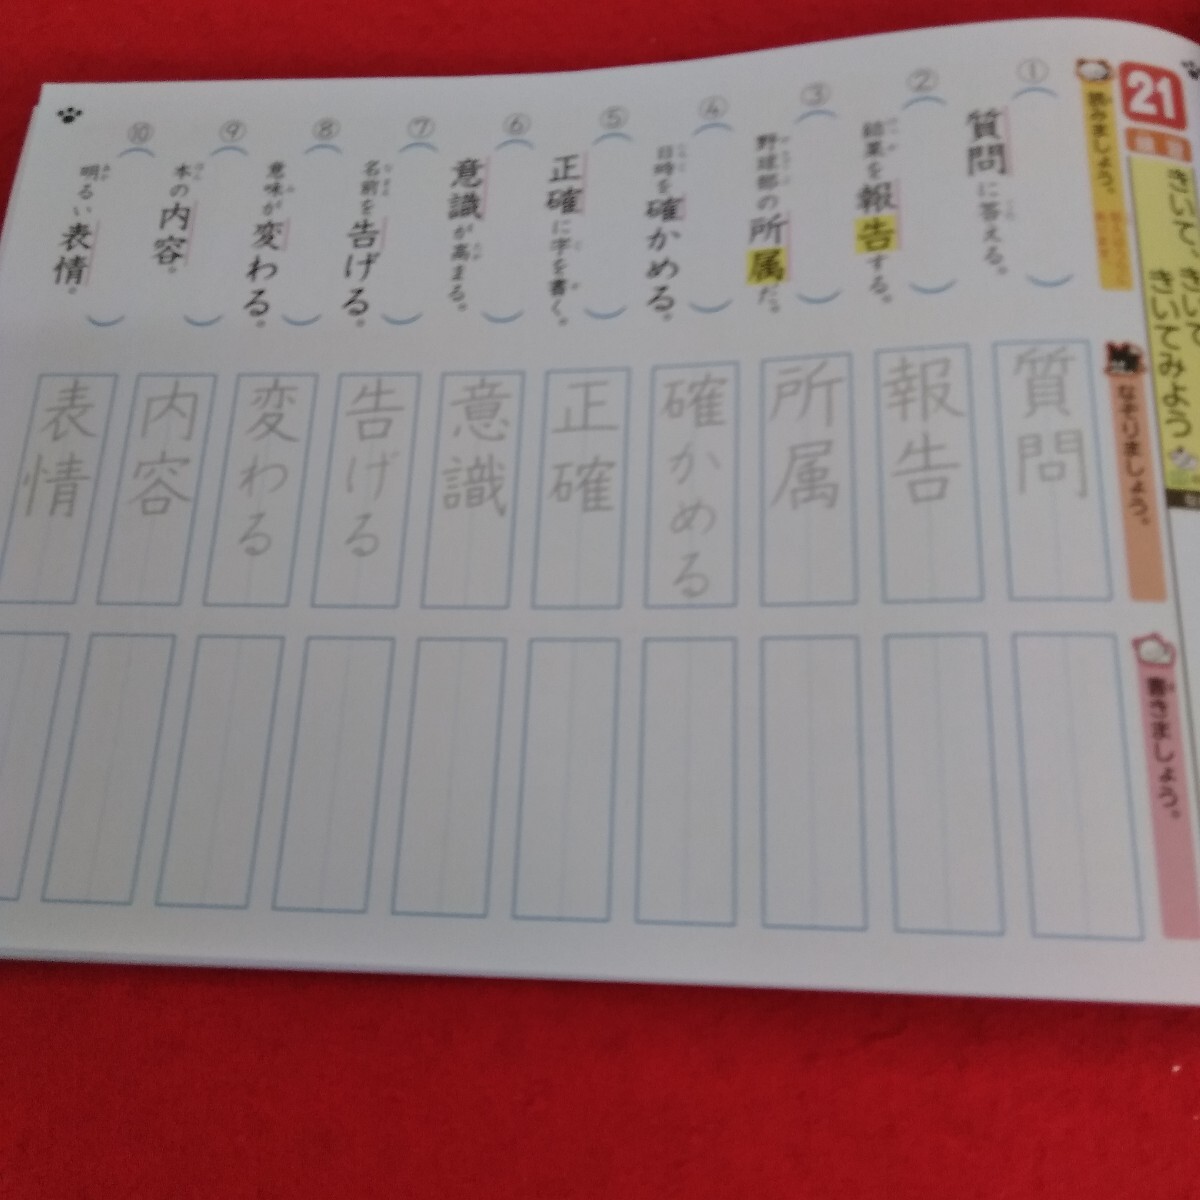 21
きいて、きいて、
きいてみよう
読みましょう。
① 質問に答える。
② 結果を報告する。
③ 野球部の所属だ。
④ 日時を確かめる。
⑤ 正確に字を書く。
⑥ 意識が高まる。
⑦ 名前を告げる。
⑧ 意味が変わる。
⑨ 本の内容。
⑩ 明るい表情。
なぞりましょう。
質問
報告
所属
確かめる
正確
意識
告げる
変わる
内容
表情
書きましょう。